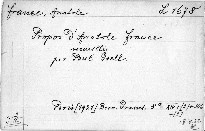 France, Anatole L 1675
Propos d'Anatole France
recueillis
par Paul Gsell.
Paris [1921] Bern. Grasset 8°